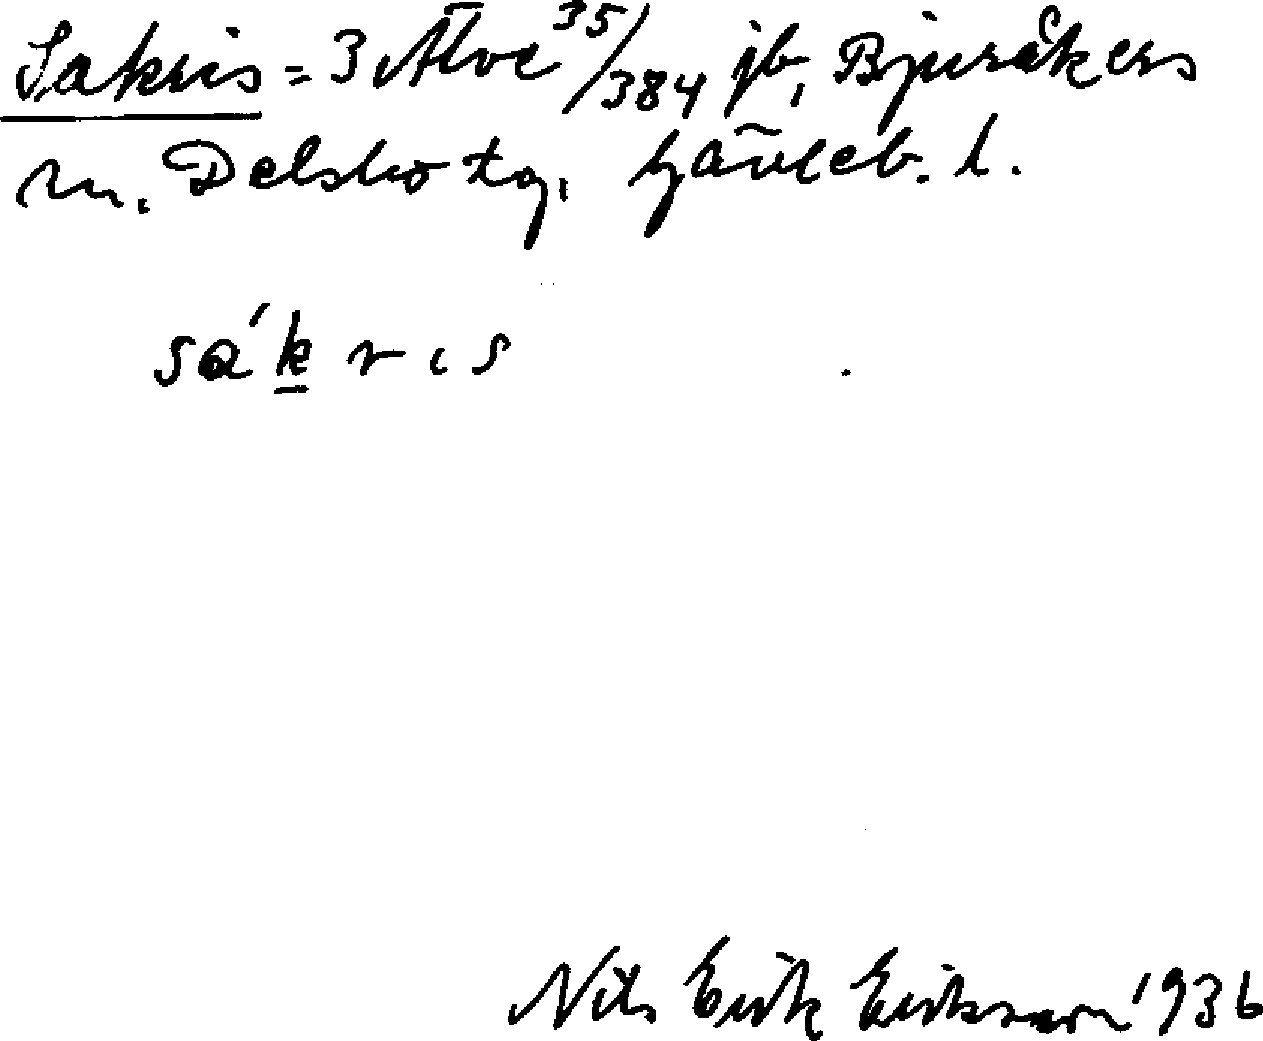 Sakris = 3 Älve 35/384 jb, Bjuråkers
sn. Delsbo tg. Gävleb. l.
sá́k̲ris
Nils Erik Eriksson 1936